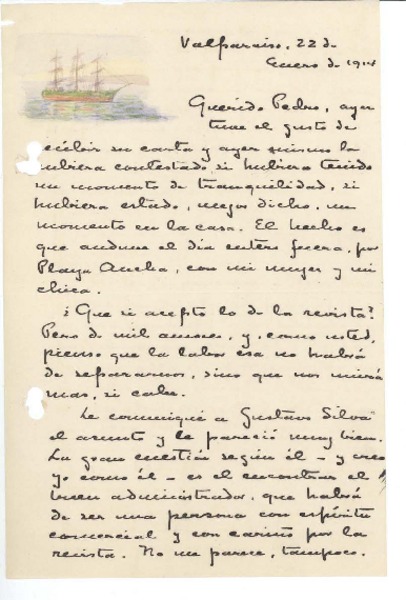 Valparaiso, 22 de
Enero de 1914
Querido Pedro, ayer
tuve el gusto de
recibir su carta y ayer mismo la
hubiera contestado, si hubiera tenido
un momento de tranquilidad, si
hubiera estado, mejor dicho, un
momento en la casa. El hecho es
que anduve el dia entero fuera, por
Playa Ancha, con mi mujer y mi
chica.
¿Que si acepto lo de la revista?
Pero de mil amores, y, como usted,
pienso que la labor esa no habrá
de separarnos, sino que nos unirá
mas, si cabe.
Le comuniqué a Gustavo Silva
el asunto y le pareció muy bien.
La gran cuestión según él - y creo
yo como él - es el encontrar el
buen administrador, que habrá
de ser una persona con espíritu
comercial y con cariño por la
revista. No me parece, tampoco,